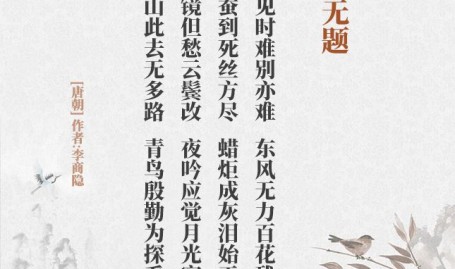 无题
见时难别亦难 东风无力百花
蚕到死丝方尽 蜡炬成灰泪始
镜但愁云鬓改 夜吟应觉月光
山此去无多路 青鸟殷勤为探
[唐朝] 作者:李商隐